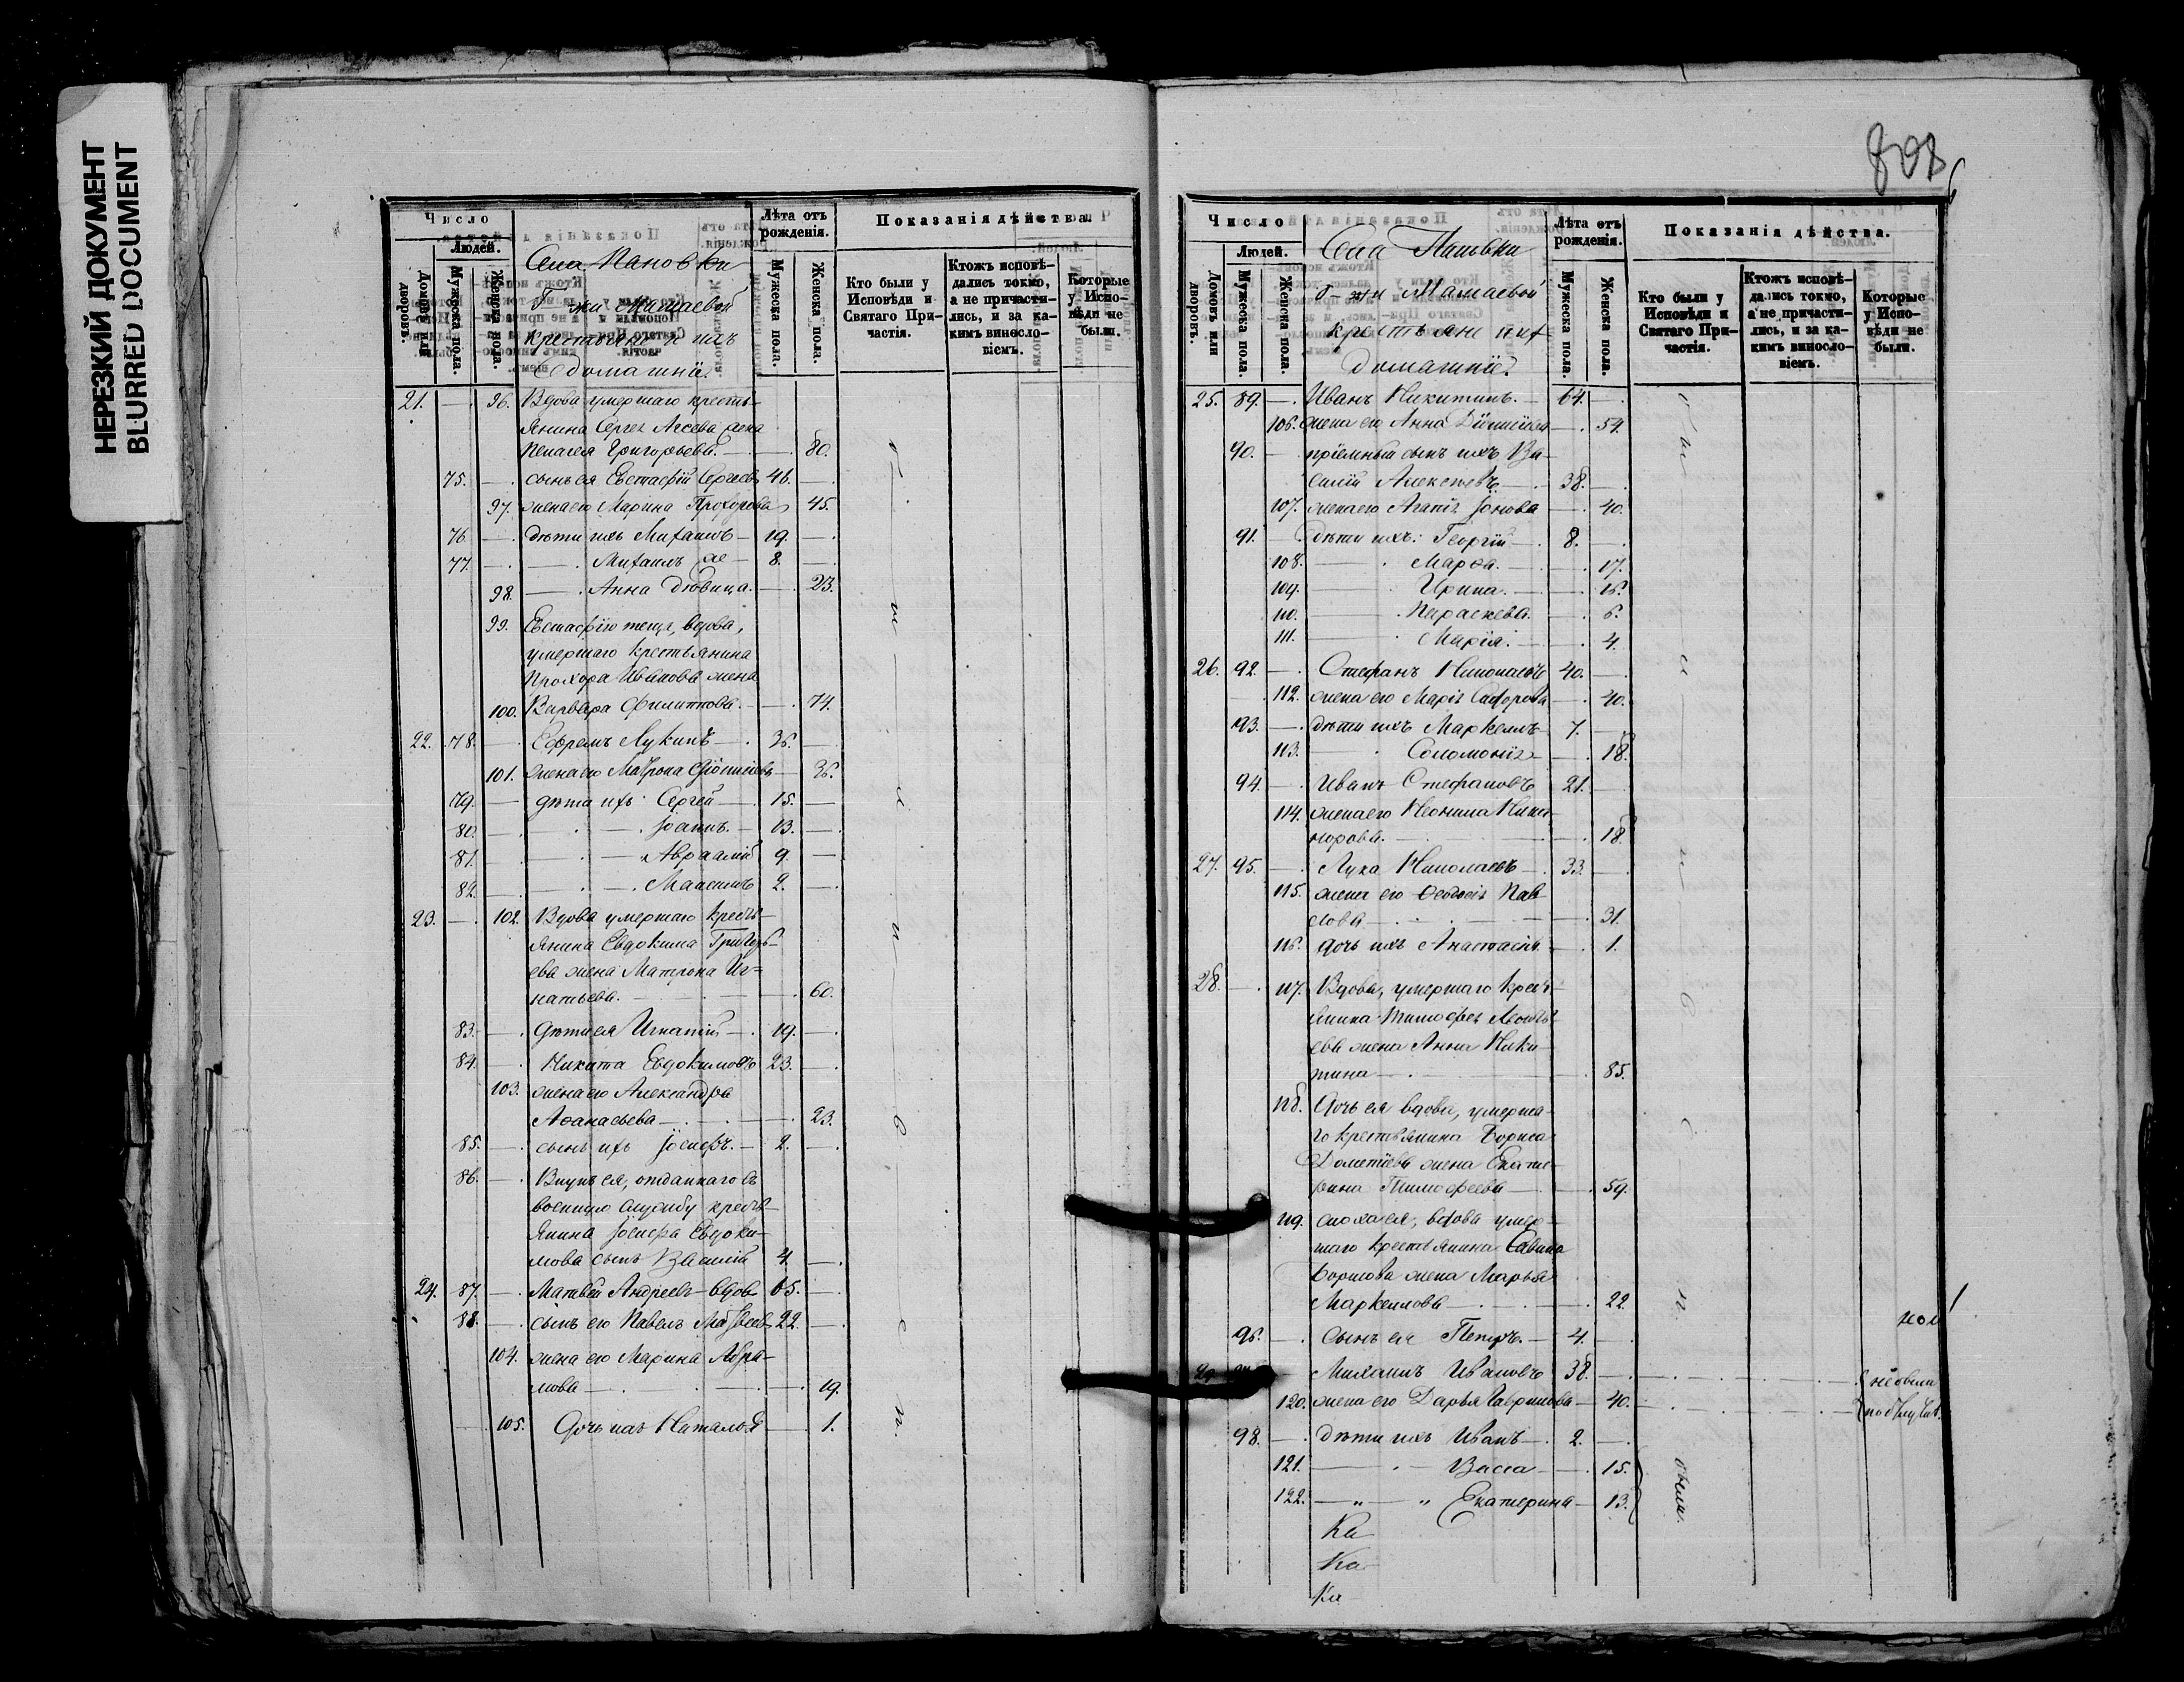 НЕРЕЗКИЙ ДОКУМЕНТ
BLURRED DOCUMENT
Число
Людей.
Домовъ или дворовъ.
Мужеска пола.
Женска пола.
Села Пановки
Г-жи Мамаевой
крестьяне и ихъ
домашніе.
Лѣта отъ рожденія.
Мужеска пола.
Женска пола.
Показанія дѣйства.
Кто были у Исповѣди и Святаго Причастія.
Ктожъ исповѣдались токмо, а не причастились, и за какимъ винословіемъ.
Которые у Исповѣди не были.
21. — 96. Вдова умершаго кресть-
янина Сергея жена
Пелагея Григорьева. — 80.
75. — сынъ ея Евстафій Сергеевъ 46. —
97. жена его Марина Прохорова 45.
76. — дѣти ихъ Михаилъ — 19. —
77. — Михаилъ же — 8. —
98. — Анна дѣвица. — 23.
99. Евстафію теща, вдова,
умершаго крестьянина
Прохора Иванова жена
100. Варвара Филиппова. — 74.
22. 78. — Ефремъ Лукинъ — 36. —
101. жена его Матрона — 36.
79. — дѣти ихъ Сергей — 15. —
80. — Іоаннъ. — 13. —
81. — Авраамій 9. —
82. — Максимъ 2. —
23. — 102. Вдова умершаго кресть-
янина Евдокима Григорь-
ева жена Матрона Иг-
натьева. — 60.
83. — Дѣти ея Игнатій — 19. —
84. — Никита Евдокимовъ 23. —
103. жена его Александра
Аѳанасьева — 23.
85. — сынъ ихъ Іосифъ. — 2. —
86. — Внукъ ея, отданнаго въ
военную службу кресть-
янина Іосифа Евдоки-
мова сынъ Василій 4. —
24. 87. — Матвей Андреевъ — вдовъ 65. —
88. — сынъ его Павелъ Матвеевъ 22. —
104. жена его Марина Абра-
мова — 19.
105. Дочь ихъ Наталья — 1.
Число
Людей.
Домовъ или дворовъ.
Мужеска пола.
Женска пола.
Села Пановки
Г-жи Мамаевой
крестьяне ихъ
домашніе.
Лѣта отъ рожденія.
Мужеска пола.
Женска пола.
Показанія дѣйства.
Кто были у Исповѣди и Святаго Причастія.
Ктожъ исповѣдались токмо, а не причастились, и за какимъ винословіемъ.
Которые у Исповѣди не были.
25. 89. — Иванъ Никитинъ. — 64. —
106. жена его Анна — 54.
90. — пріемный сынъ ихъ Ва-
силій Алексеевъ — 38. —
107. жена его Агапія Іонова — 40.
91. — дѣти ихъ: Георгій — 8. —
108. — Марѳа. — 17.
109. — Ирина. — 16.
110. — Параскева. — 6.
111. — Марія. — 4.
26. 92. — Стефанъ Николаевъ 40. —
112. жена его Марія — 40.
93. — дѣти ихъ Маркеллъ 7. —
113. — Соломонія — 18.
94. — Иванъ Стефановъ 21. —
114. жена его Неонила Ника-
норова. — 18.
27. 95. — Лука Николаевъ — 33. —
115. жена его Ѳеодосія Пав-
лова — 31.
116. дочь ихъ Анастасія. — 1.
28. — 117. Вдова, умершаго кресть-
янина Тимофея Леонть-
ева жена Анна Ники-
тина — 85.
118. Дочь ея вдова, умерша-
го крестьянина Бориса
Дометіева жена Екате-
рина Тимофеева — 59.
119. сноха ея, вдова умер-
шаго крестьянина Савина
Борисова жена Марья
Маркеллова — 22.
96. — Сынъ ея Петръ. — 4. —
Михаилъ Ивановъ 38. — не были
120. жена его Дарья Гаврилова — 40.
98. — дѣти ихъ Иванъ — 2. —
121. — Васса — 15.
122. — " — " Екатерина — 13.
были.
Ка
Ка
Ка